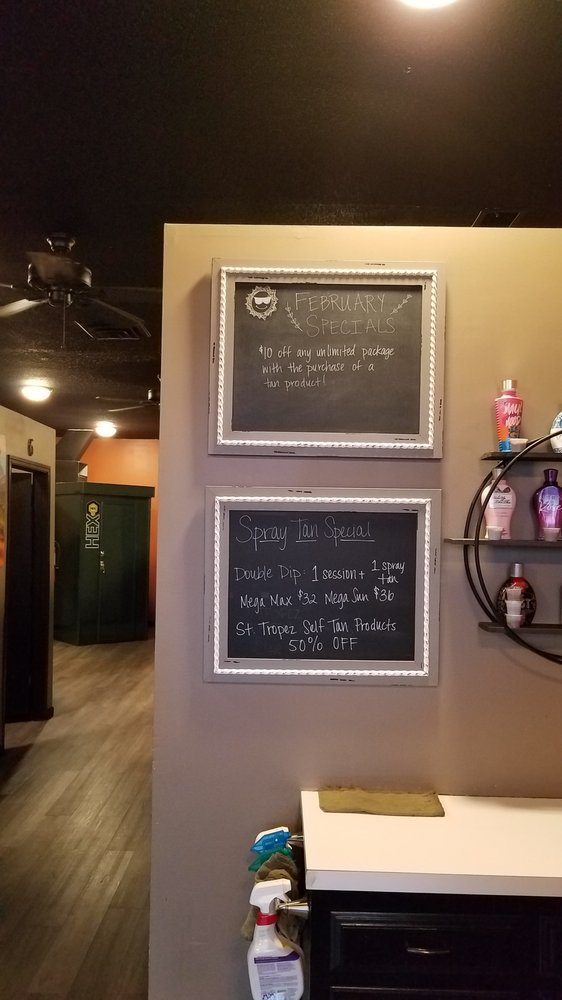 FEBRUARY
SPECIALS
$10 off any unlimited package
with the purchase of a
tan product!
Spray Tan Special
Double Dip: 1 session + 1 spray tan
Mega Max $32 Mega Sun $36
St. Tropez Self Tan Products
50% OFF
HEX
6